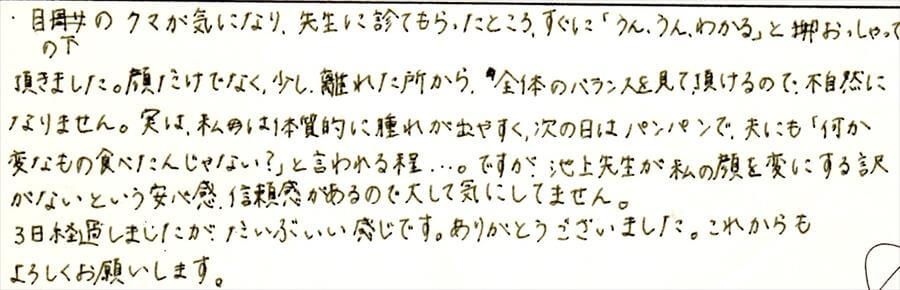 ・目の下のクマが気になり、先生に診てもらったところ、すぐに「うん、うん、わかる」とおっしゃって
頂きました。顔だけでなく、少し離れた所から、全体のバランスを見て頂けるので、不自然に
なりません。実は、私は体質的に腫れが出やすく、次の日はパンパンで、夫にも「何か
変なもの食べたんじゃない？」と言われる程…。ですが、池上先生が私の顔を変にする訳
がないという安心感、信頼感があるので大して気にしてません。
3日経過しましたが、だいぶいい感じです。ありがとうございました。これからも
よろしくお願いします。